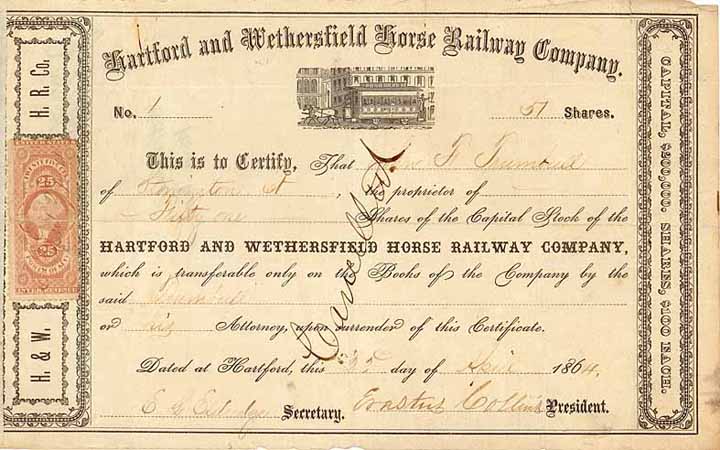 Hartford and Wethersfield Horse Railway Company.
No. 1
51 Shares.
This is to Certify, That Trumbull
of Stonington Ct, the proprietor of
Fifty one Shares of the Capital Stock of the
HARTFORD AND WETHERSFIELD HORSE RAILWAY COMPANY,
which is transferable only on the Books of the Company by the
said Trumbull
or his Attorney, upon surrender of this Certificate.
Dated at Hartford, this day of 1864.
Secretary. Erastus Collins President.
Cancelled
H. & W. H. R. Co.
25 25
CAPITAL, $200,000. SHARES, $100 EACH.